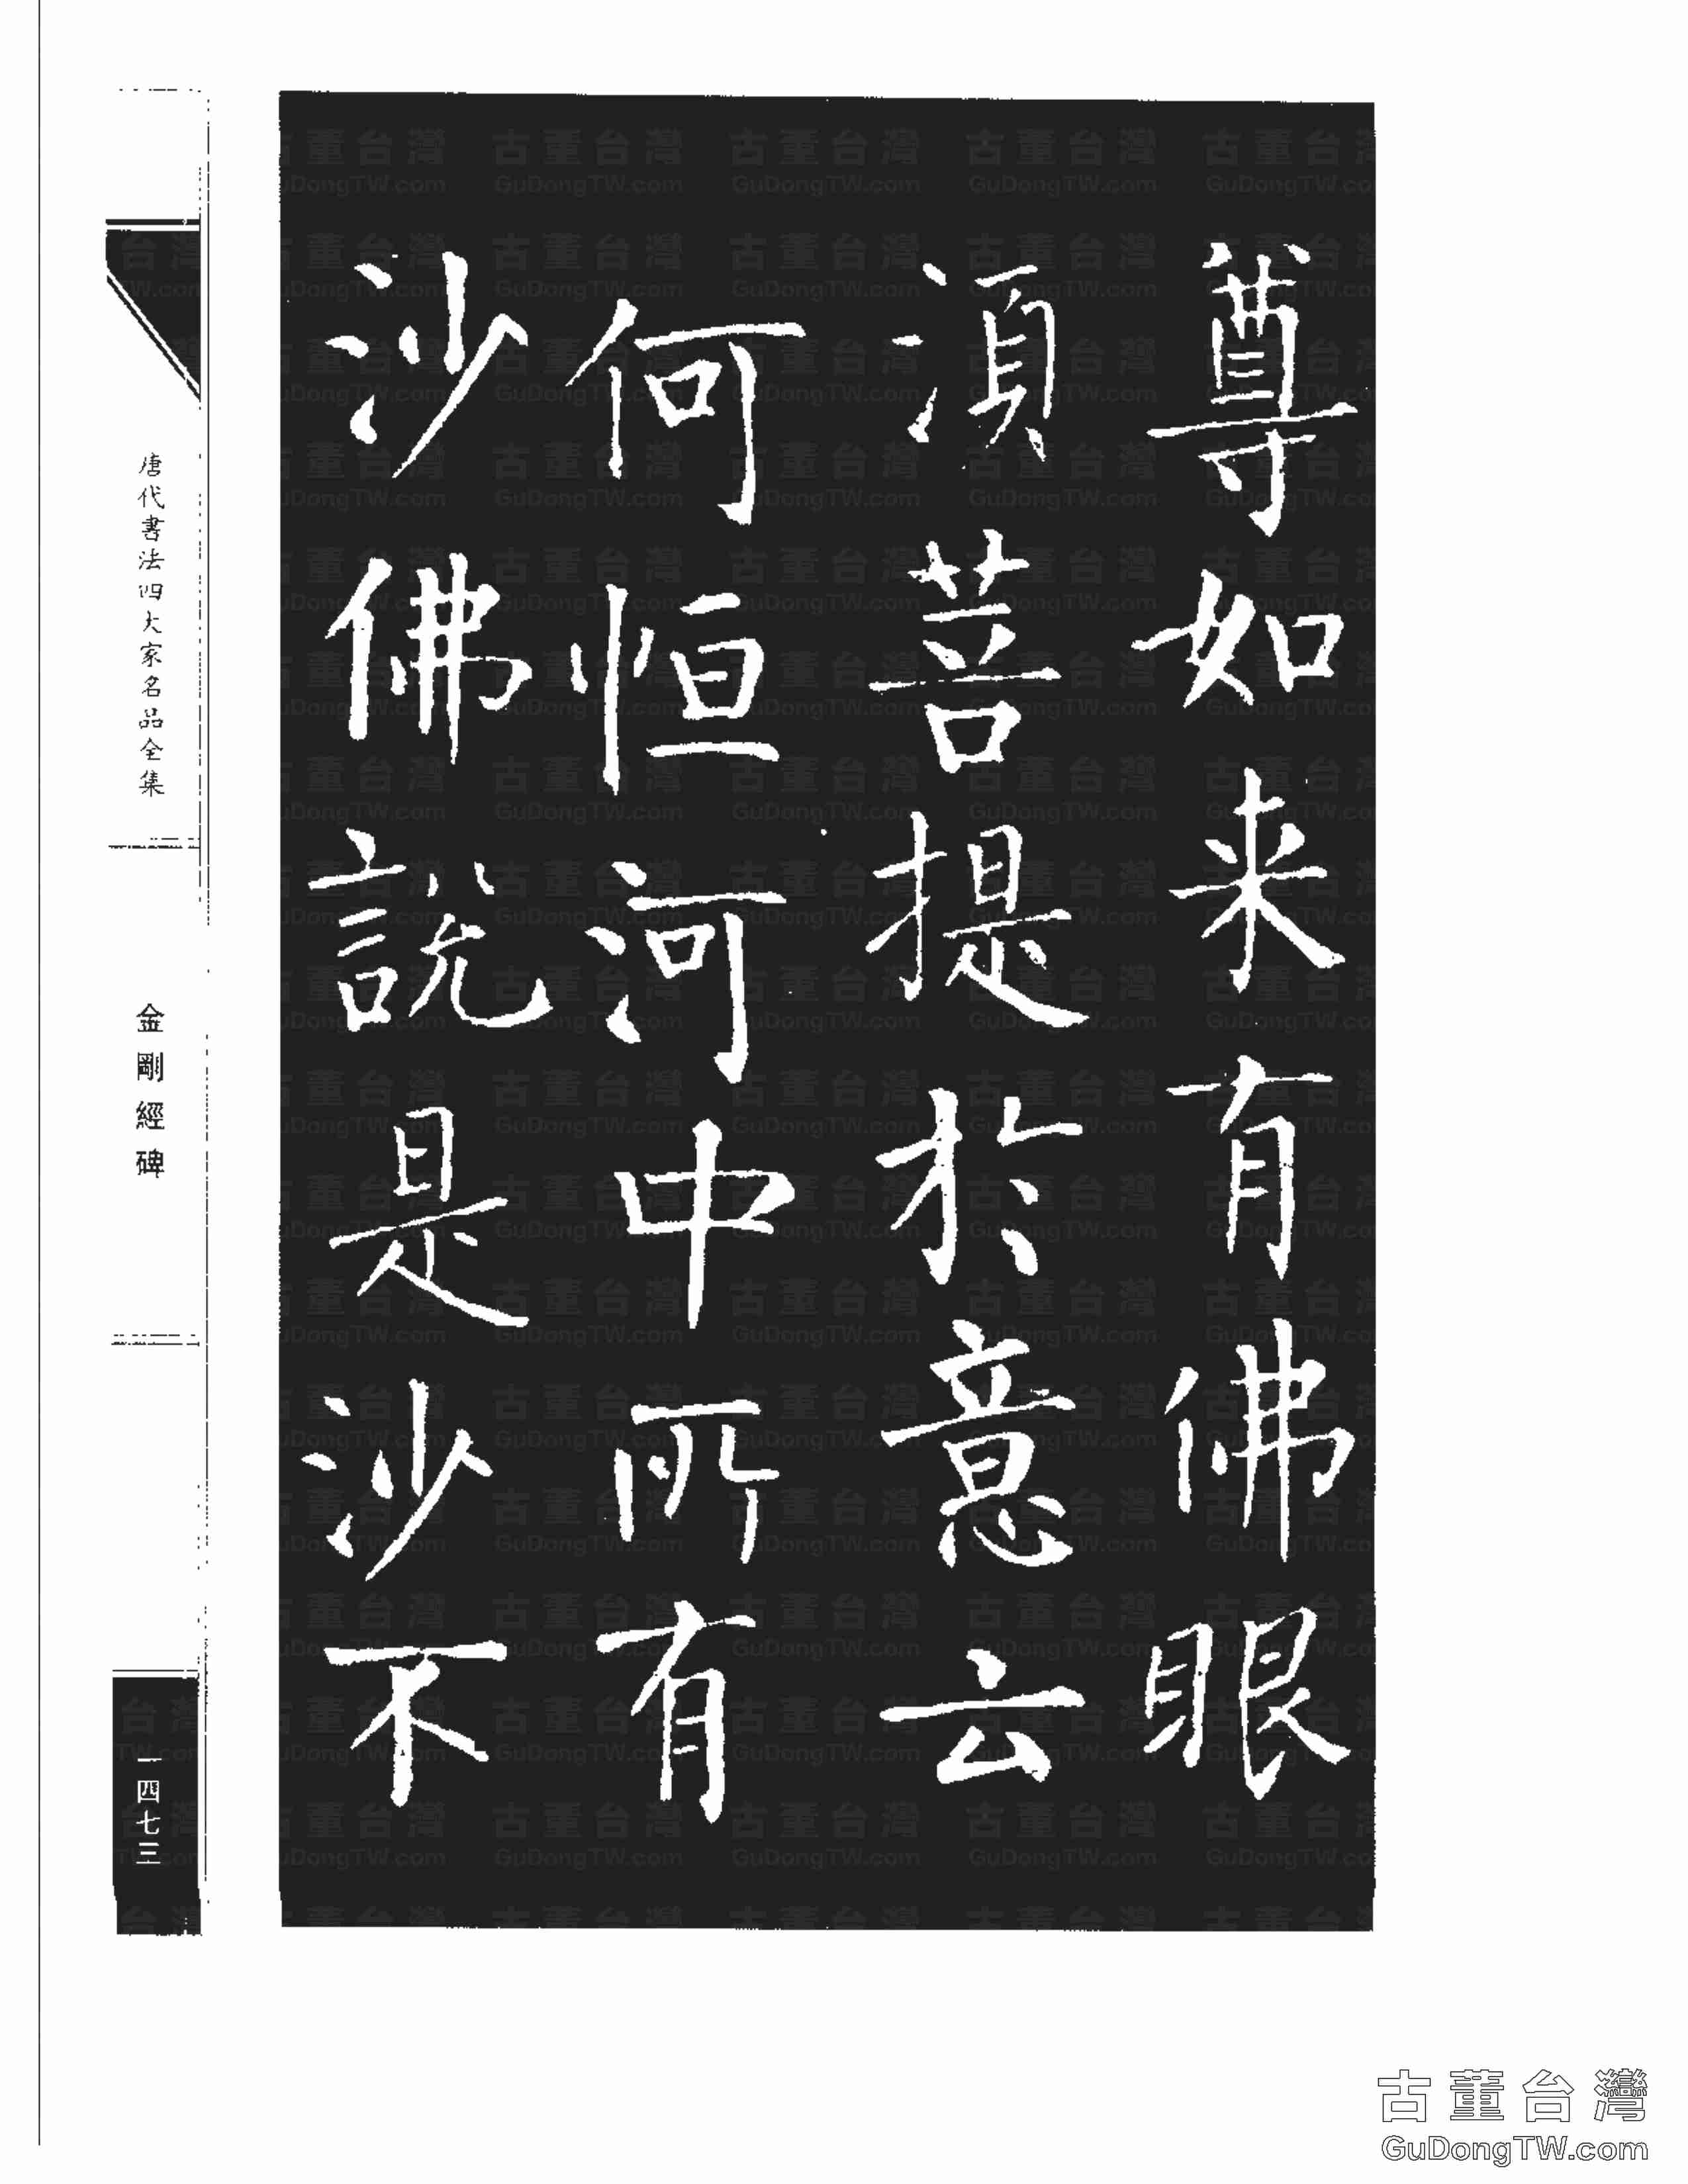 尊如来有佛眼
湏菩提於意云
何恒河中所有
沙佛說是沙不
唐代書法四大家名品全集
金剛經碑
一四七三
古董台灣
GuDongTW.com